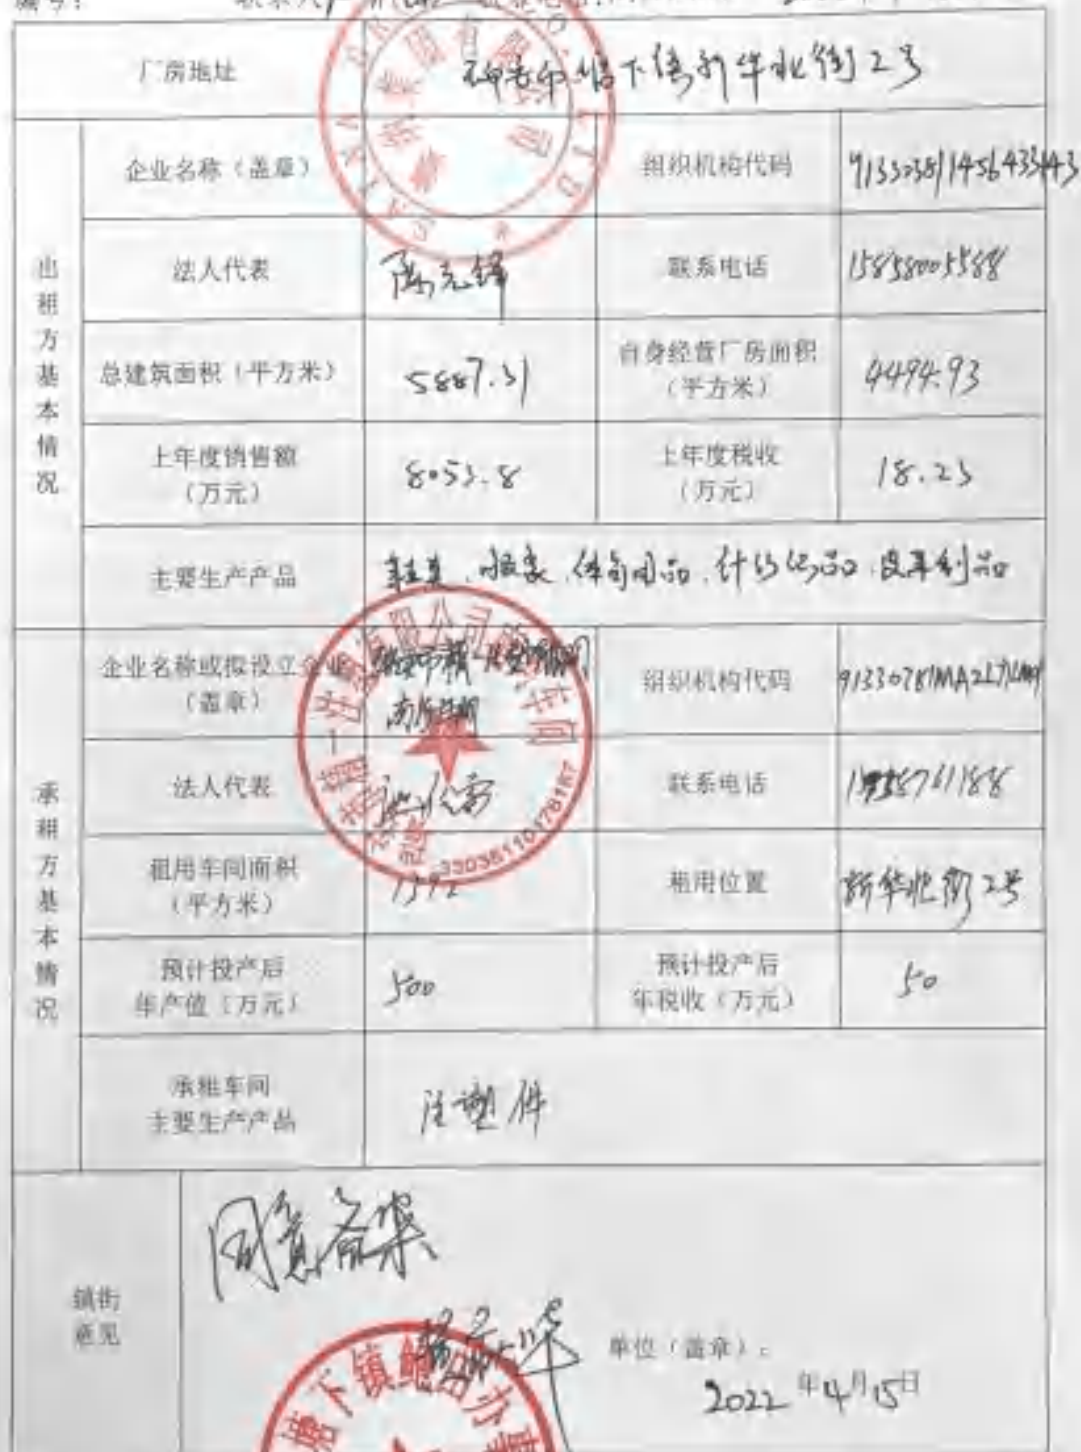 编号：
厂房地址 塘下镇新华北街2号
出租方基本情况
企业名称（盖章）
集团有限公司
组织机构代码
法人代表
联系电话 15858005588
总建筑面积（平方米） 5887.31
自身经营厂房面积
（平方米） 4494.93
上年度销售额
（万元） 8053.8
上年度税收
（万元） 18.23
主要生产产品 鞋类、服装、体育用品、针纺织品、皮革制品
承租方基本情况
企业名称或拟设立企业
（盖章）
组织机构代码
法人代表
联系电话
33038110178187
租用车间面积
（平方米） 1392
租用位置 新华北街2号
预计投产后
年产值（万元） 500
预计投产后
年税收（万元） 50
承租车间
主要生产产品 注塑件
镇街
意见
同意备案
单位（盖章）：
2022年4月15日
塘下镇鲍田办事